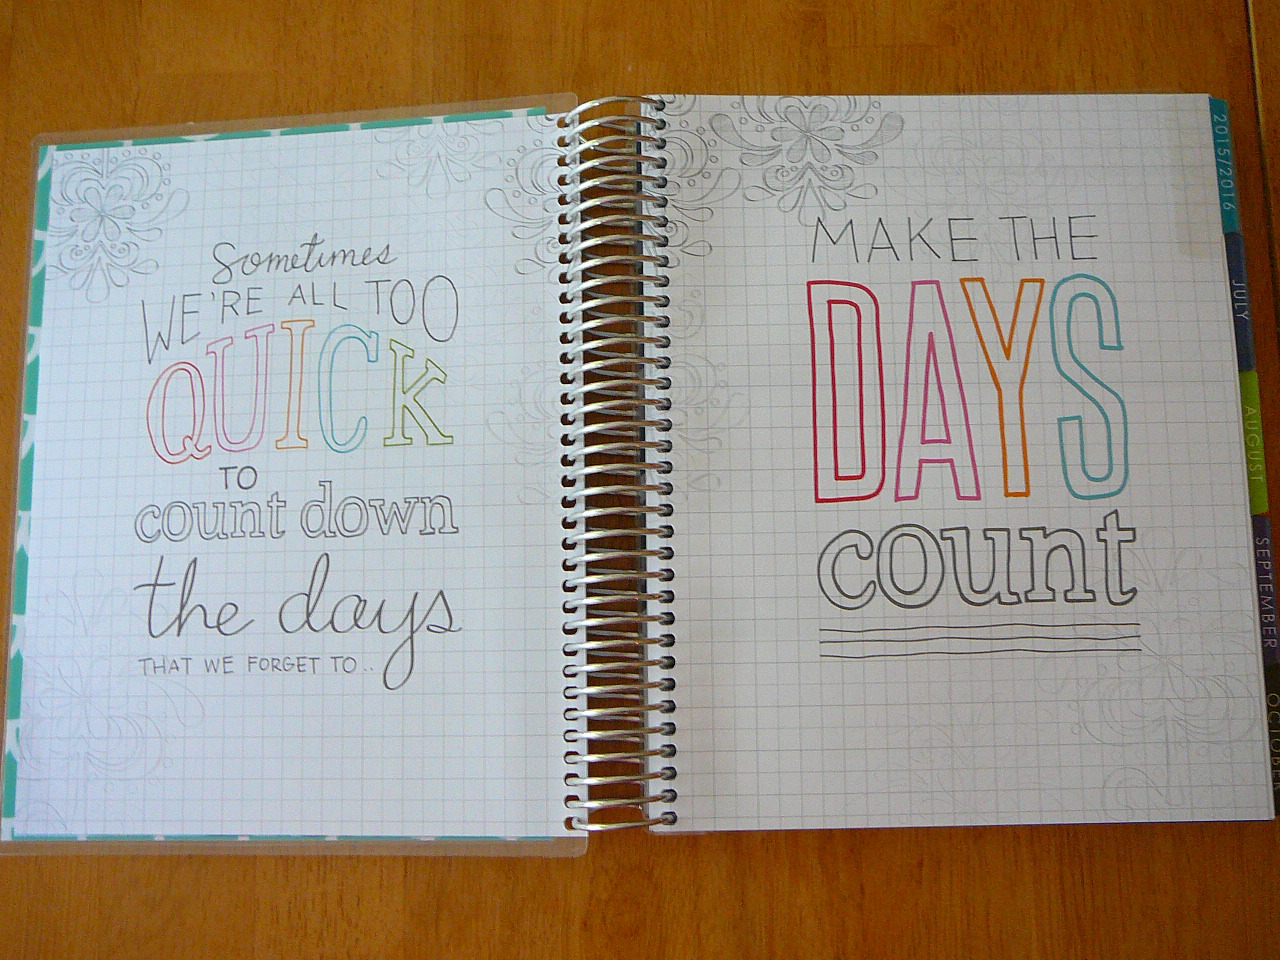 Sometimes
WE'RE ALL TOO
QUICK
TO
count down
the days
THAT WE FORGET TO..
MAKE THE
DAYS
count
2015/2016
JULY
AUGUST
SEPTEMBER
OCTOBER